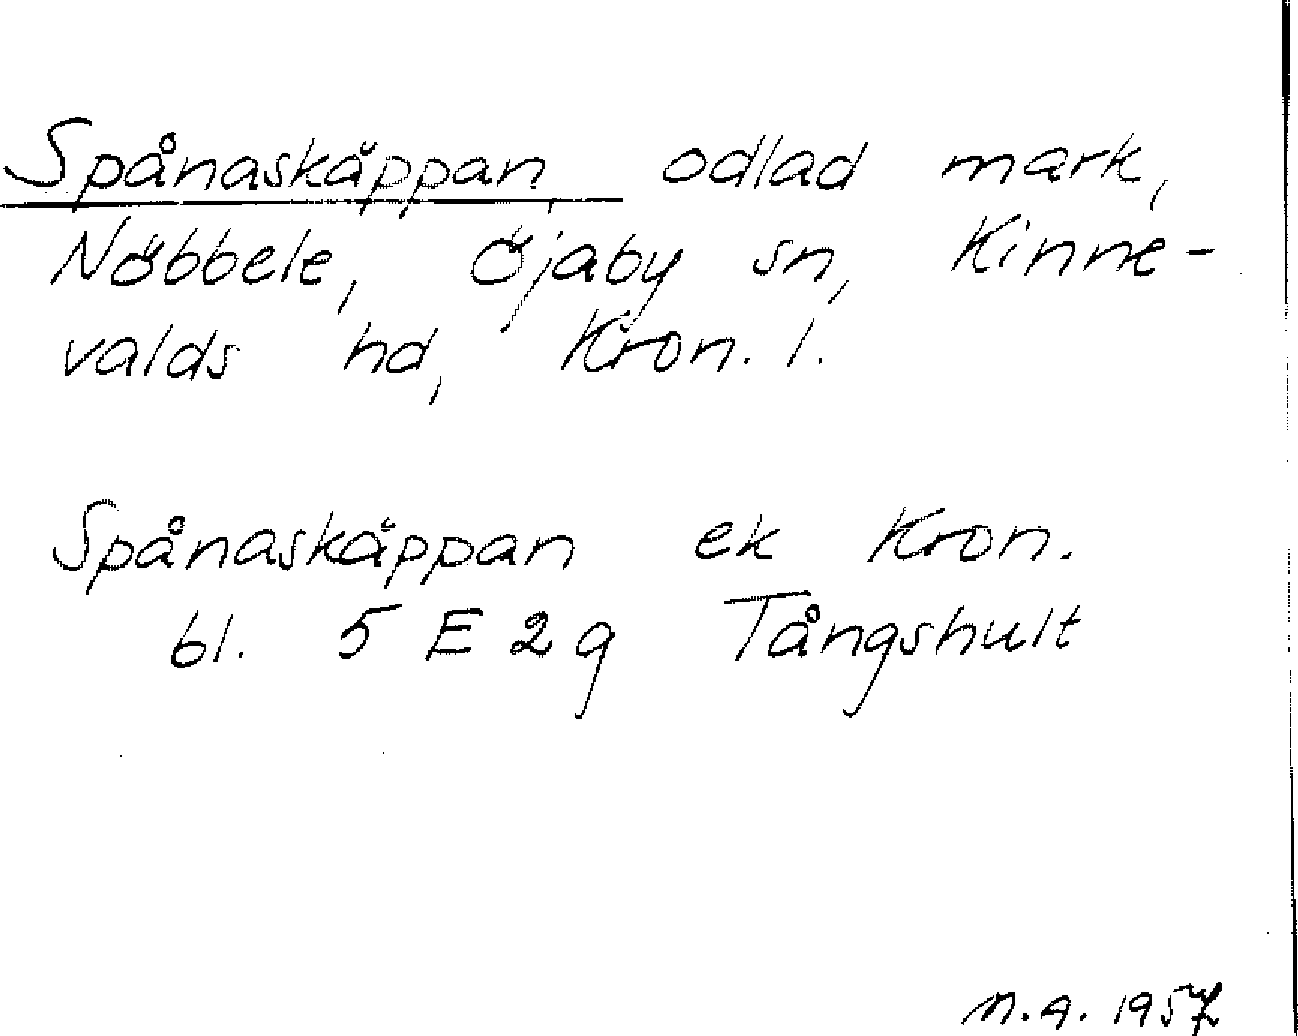 Spånaskäppan, odlad mark,
Nöbbele, Öjaby sn, Kinne-
valds hd, Kron. l.
Spånaskäppan ek Kron.
bl. 5 E 2 g Tångshult
n.g. 1957